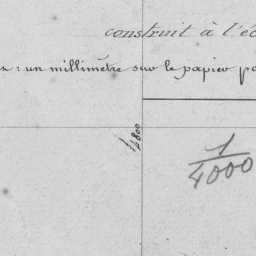 construit à l'éc
: un millimètre sur le papier po
1/4000